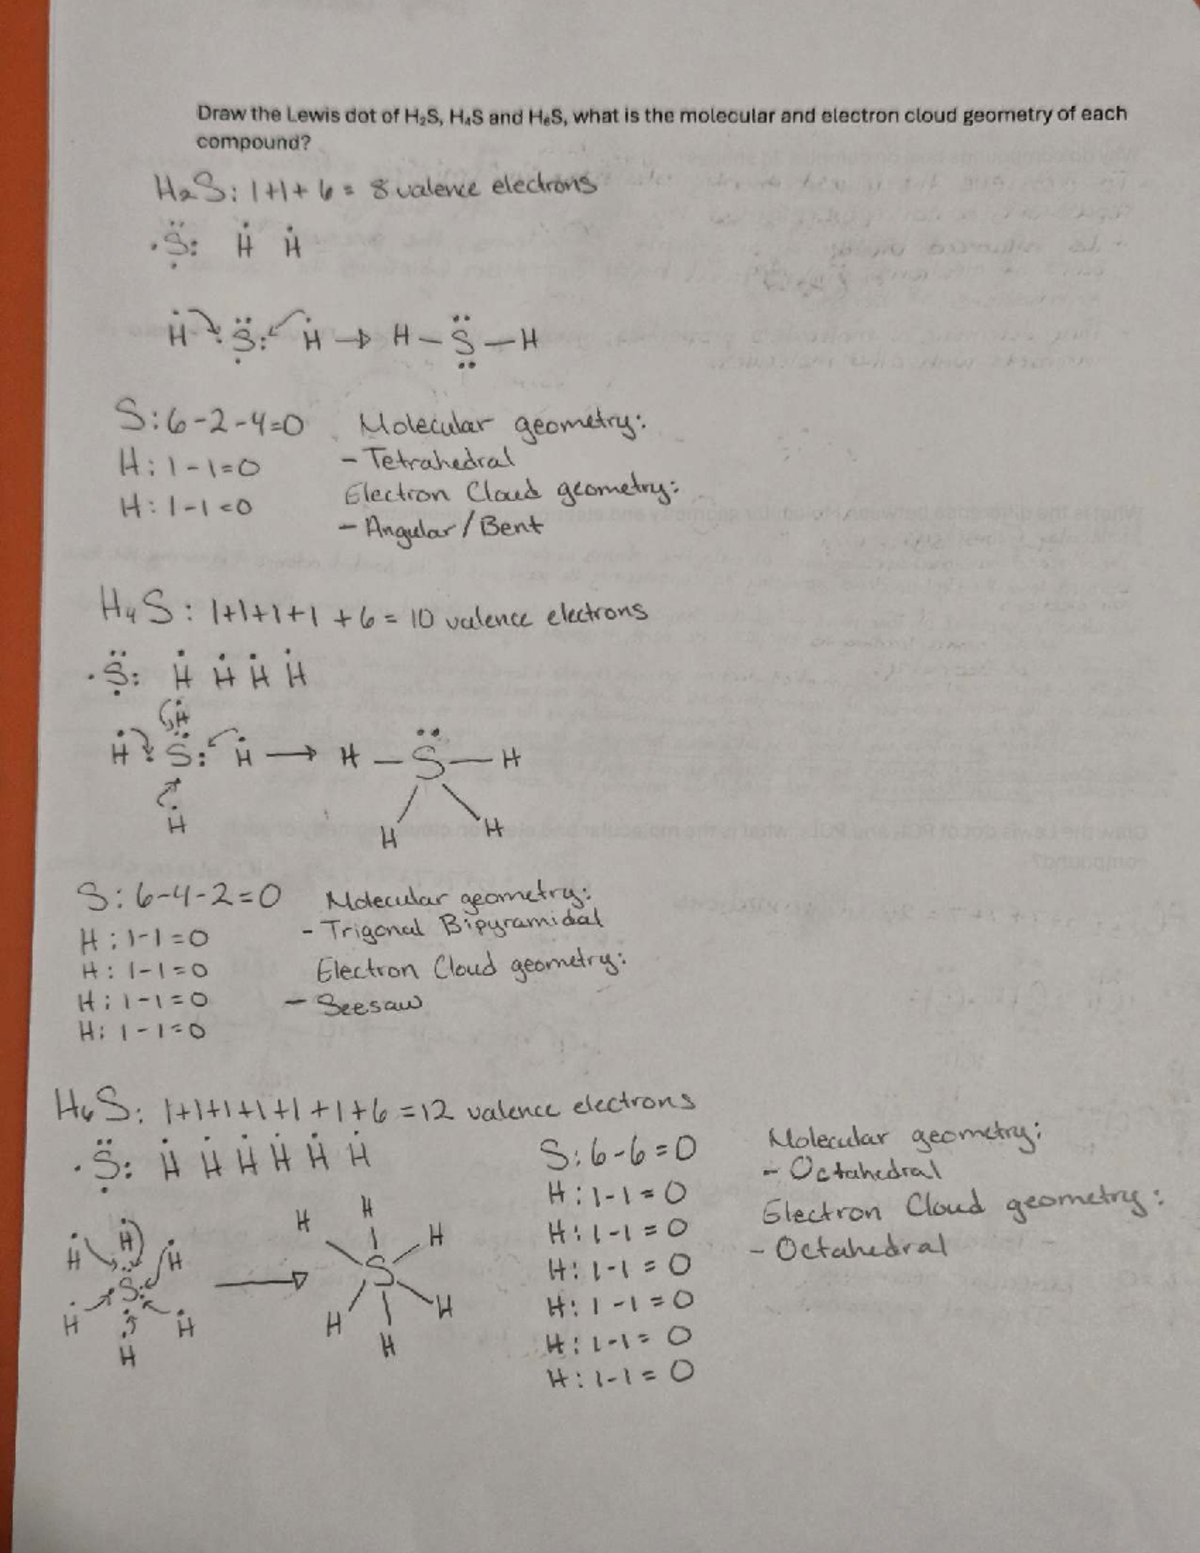 Draw the Lewis dot of H₂S, H₄S and H₆S, what is the molecular and electron cloud geometry of each
compound?
H₂S: 1+1+6 = 8 valence electrons
S H H
H S H → H – S – H
S: 6-2-4=0 Molecular geometry:
H: 1-1=0 - Tetrahedral
Electron Cloud geometry:
H: 1-1=0
- Angular/Bent
H₄S: 1+1+1+1+6 = 10 valence electrons
S H H H H
H
H S H → H – S – H
H H H
S: 6-4-2=0 Molecular geometry:
H: 1-1=0 - Trigonal Bipyramidal
H: 1-1=0 Electron Cloud geometry:
H: 1-1=0 - Seesaw
H: 1-1=0
H₆S: 1+1+1+1+1+1+6 = 12 valence electrons
S H H H H H H
H H H
S
H H H
→
H H H
S
H H H
S: 6-6=0
H: 1-1=0
H: 1-1=0
H: 1-1=0
H: 1-1=0
H: 1-1=0
H: 1-1=0
Molecular geometry:
- Octahedral
Electron Cloud geometry:
- Octahedral